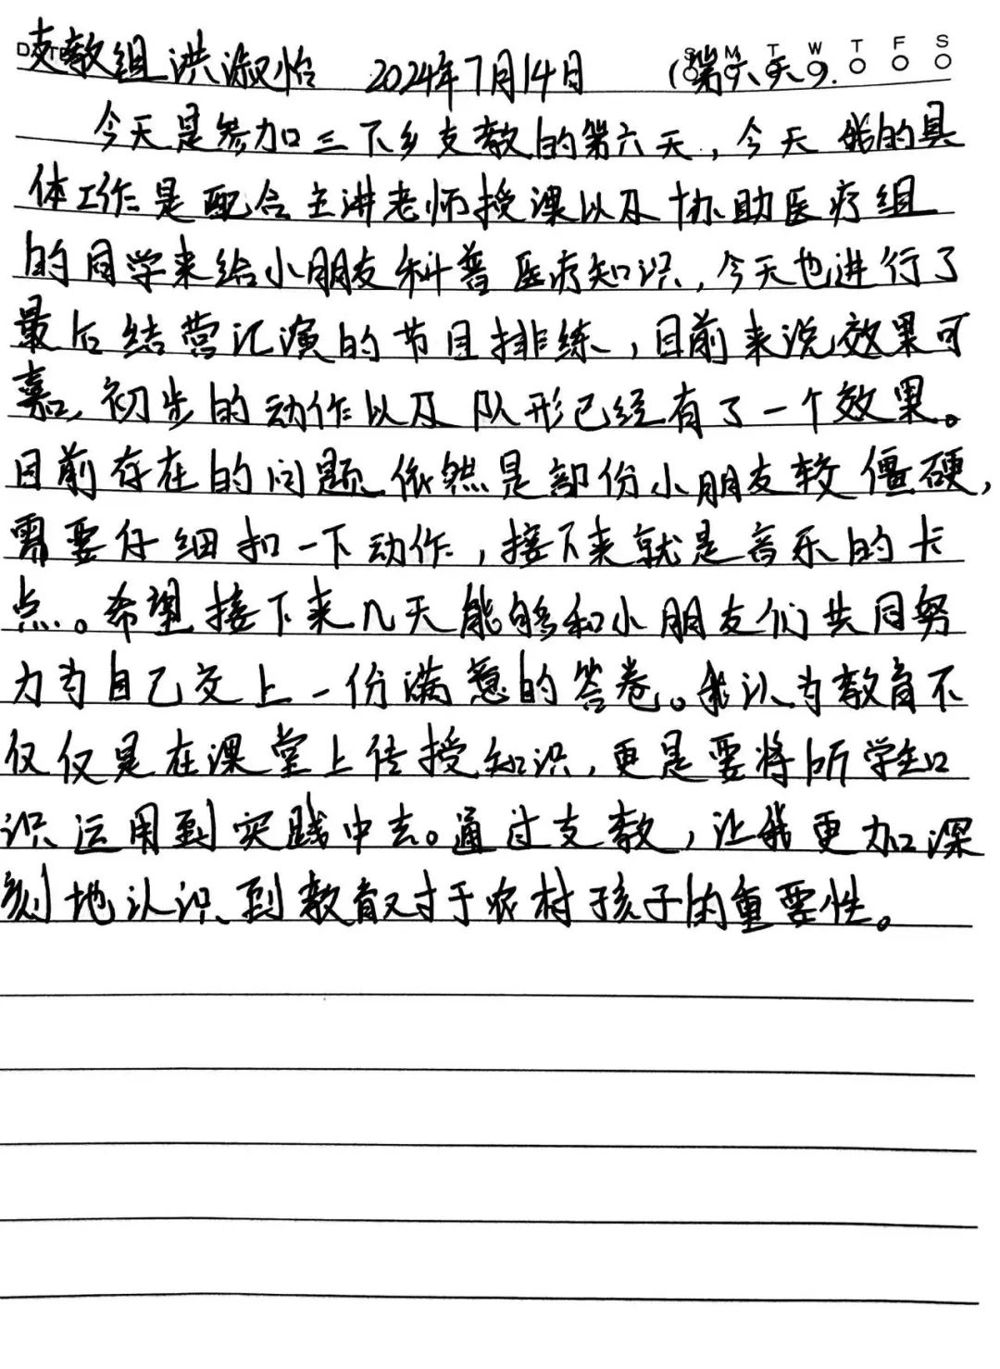 支教组 洪淑怡 2024年7月14日 (第六天).
S M T W T F S
今天是参加三下乡支教的第六天，今天我的具
体工作是配合主讲老师授课以及协助医疗组
的同学来给小朋友科普医疗知识，今天也进行了
最后结营汇演的节目排练，目前来说效果可
嘉，初步的动作以及队形已经有了一个效果。
目前存在的问题依然是部份小朋友较僵硬，
需要仔细扣一下动作，接下来就是音乐的卡
点。希望接下来几天能够和小朋友们共同努
力为自己交上一份满意的答卷。我认为教育不
仅仅是在课堂上传授知识，更是要将所学知
识运用到实践中去。通过支教，让我更加深
刻地认识到教育对于农村孩子的重要性。